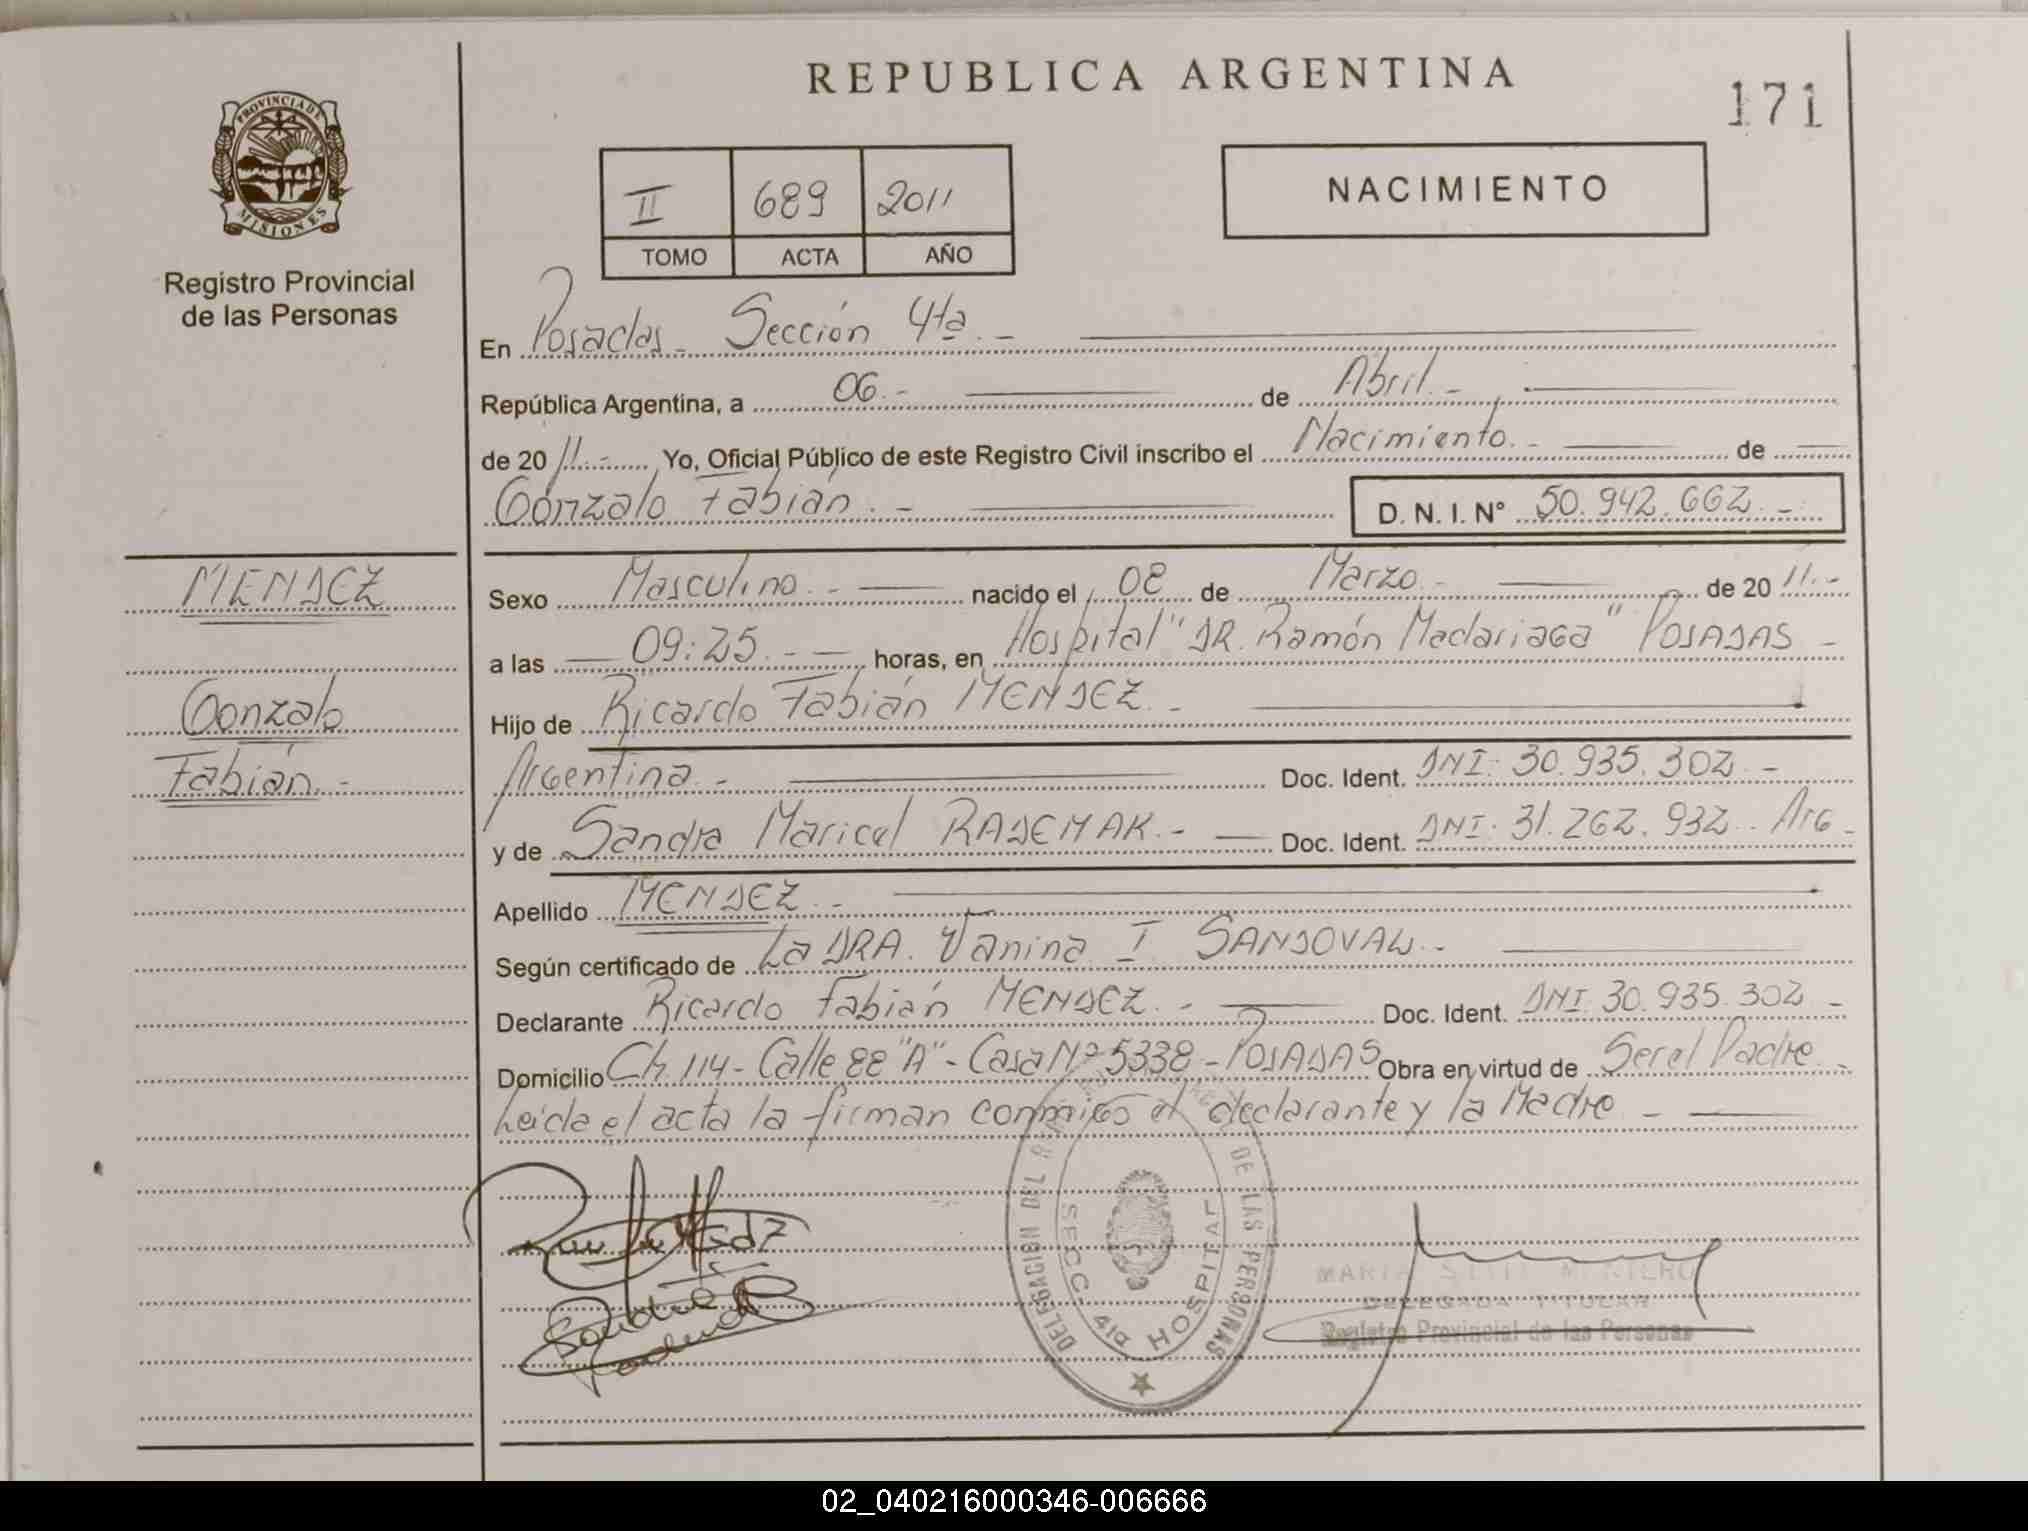 REPUBLICA ARGENTINA
171
PROVINCIA DE
MISIONES
Registro Provincial
de las Personas
II 689 2011
TOMO ACTA AÑO
NACIMIENTO
En Posadas - Sección 4ta. -
República Argentina, a 06. - de Abril. -
de 20 11. - Yo, Oficial Público de este Registro Civil inscribo el Nacimiento. - de
Gonzalo Fabián. - D. N. I. N° 50.942.662. -
MENDEZ
Gonzalo
Fabián. -
Sexo Masculino. - nacido el 08 de Marzo - de 20 11. -
a las 09:25. - horas, en Hospital "DR. Ramón Madariaga" POSADAS -
Hijo de Ricardo Fabián MENDEZ. -
Argentina. - Doc. Ident. DNI: 30.935.302 -
y de Sandra Maricel RADEMAK. - Doc. Ident. DNI: 31.262.932. Arg -
Apellido MENDEZ. -
Según certificado de La DRA. Vanina I. SANDOVAL. -
Declarante Ricardo Fabián MENDEZ. - Doc. Ident. DNI. 30.935.302 -
Domicilio Ch. 114 - Calle 88 "A" - Casa Nº 5338 - POSADAS Obra en virtud de Ser el Padre. -
Leida el acta la firman conmigo el declarante y la Madre -
DELEGACION DEL DE LAS PERSONAS
SECC. 4ta HOSPITAL
DELEGADA TITULAR
Registro Provincial de las Personas
02_040216000346-006666